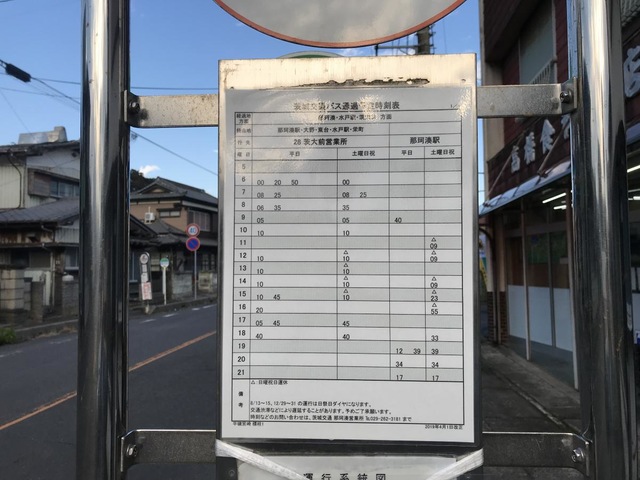 茨城交通バス通過予定時刻表
経由地 方面 那珂湊・水戸駅・茨大前 方面
経由地 那珂湊駅・大野・東台・水戸駅・栄町
行先 26 茨大前営業所 那珂湊駅
曜日 平日 土曜日祝 平日 土曜日祝
5
6 00 20 50 00
7 08 25 08 25
8 06 35 35
9 05 05 40
10 10 10
11 △ 09
12 10 △ 10 △ 09
13 10 △ 10
14 10 △ 10 △ 09
15 10 45 △ 10 △ 23
16 20 △ 55
17 05 45 45
18 40 40 33
19 12 39 39
20 34 34
21 17 17
△:日曜祝日運休
備考
8/13~15、12/29~31 の運行は日祭日ダイヤになります。
交通渋滞などにより遅延することがあります。予めご了承願います。
時刻などのお問い合わせは、茨城交通 那珂湊営業所 ℡029-262-3181 まで
2019年4月1日改正
運行系統図